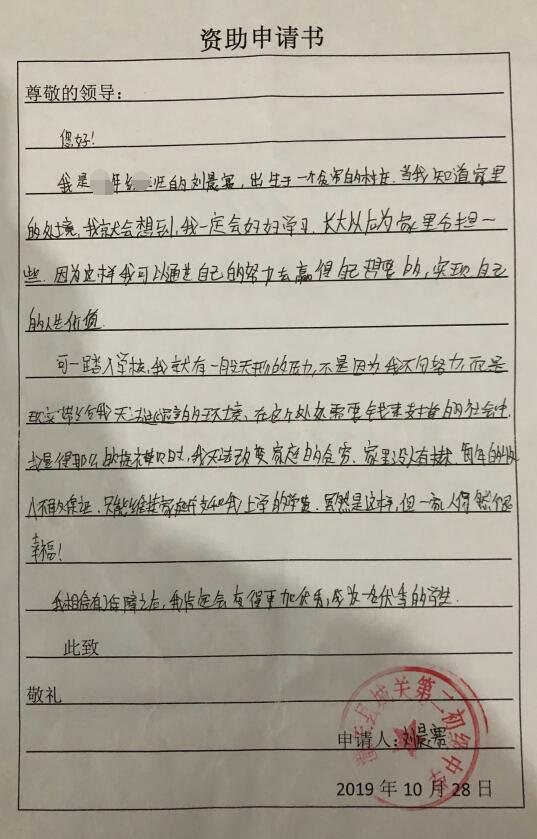 资助申请书
尊敬的领导：
您好!
我是 年 班的刘晨 ，出生于一个贫穷的村庄. 当我知道家里
的处境, 我就会想到, 我一定会好好学习. 长大以后为家里分担一
些. 因为这样我可以通过自己的努力去赢得自己想要的, 实现自己
的人生价值.
可一踏入学校, 我就有一股无形的压力, 不是因为我不够努力, 而是
父母给我无法选择的环境. 在这个处处需要钱来支撑的社会中,
显得那么的 , 我无法改变家庭的贫穷. 家里没有 , 每年的收
入不 保证. 只能维持家庭 和我上学的学费. 虽然是这样, 但一家人仍然很
幸福!
我相信有了保障之后, 我肯定会变得更加优秀, 成为一名优秀的学生.
此致
敬礼
申请人: 刘晨
城关第二初级中学
2019 年 10 月 28 日